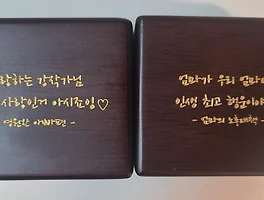 랑하는 강작가님
사랑인거 아시죠잉♡
- 영원한 아빠편 -
엄마가 우리 엄마
인생 최고 행운이야
- 엄마의 노후대책 -